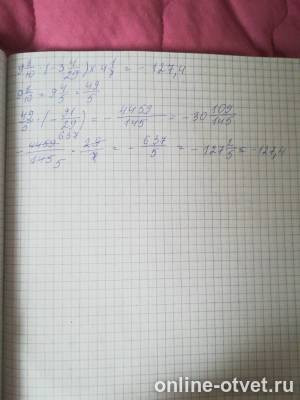 9 8/10 · (-3 4/29) × 4 1/7 = - 127,4
9 8/10 = 9 4/5 = 49/5
49/5 · (- 91/29) = - 4459/145 = - 30 109/145
- 4459 637/145 5 · 29/7 = - 637/5 = - 127 2/5 = -127,4
online-otvet.ru